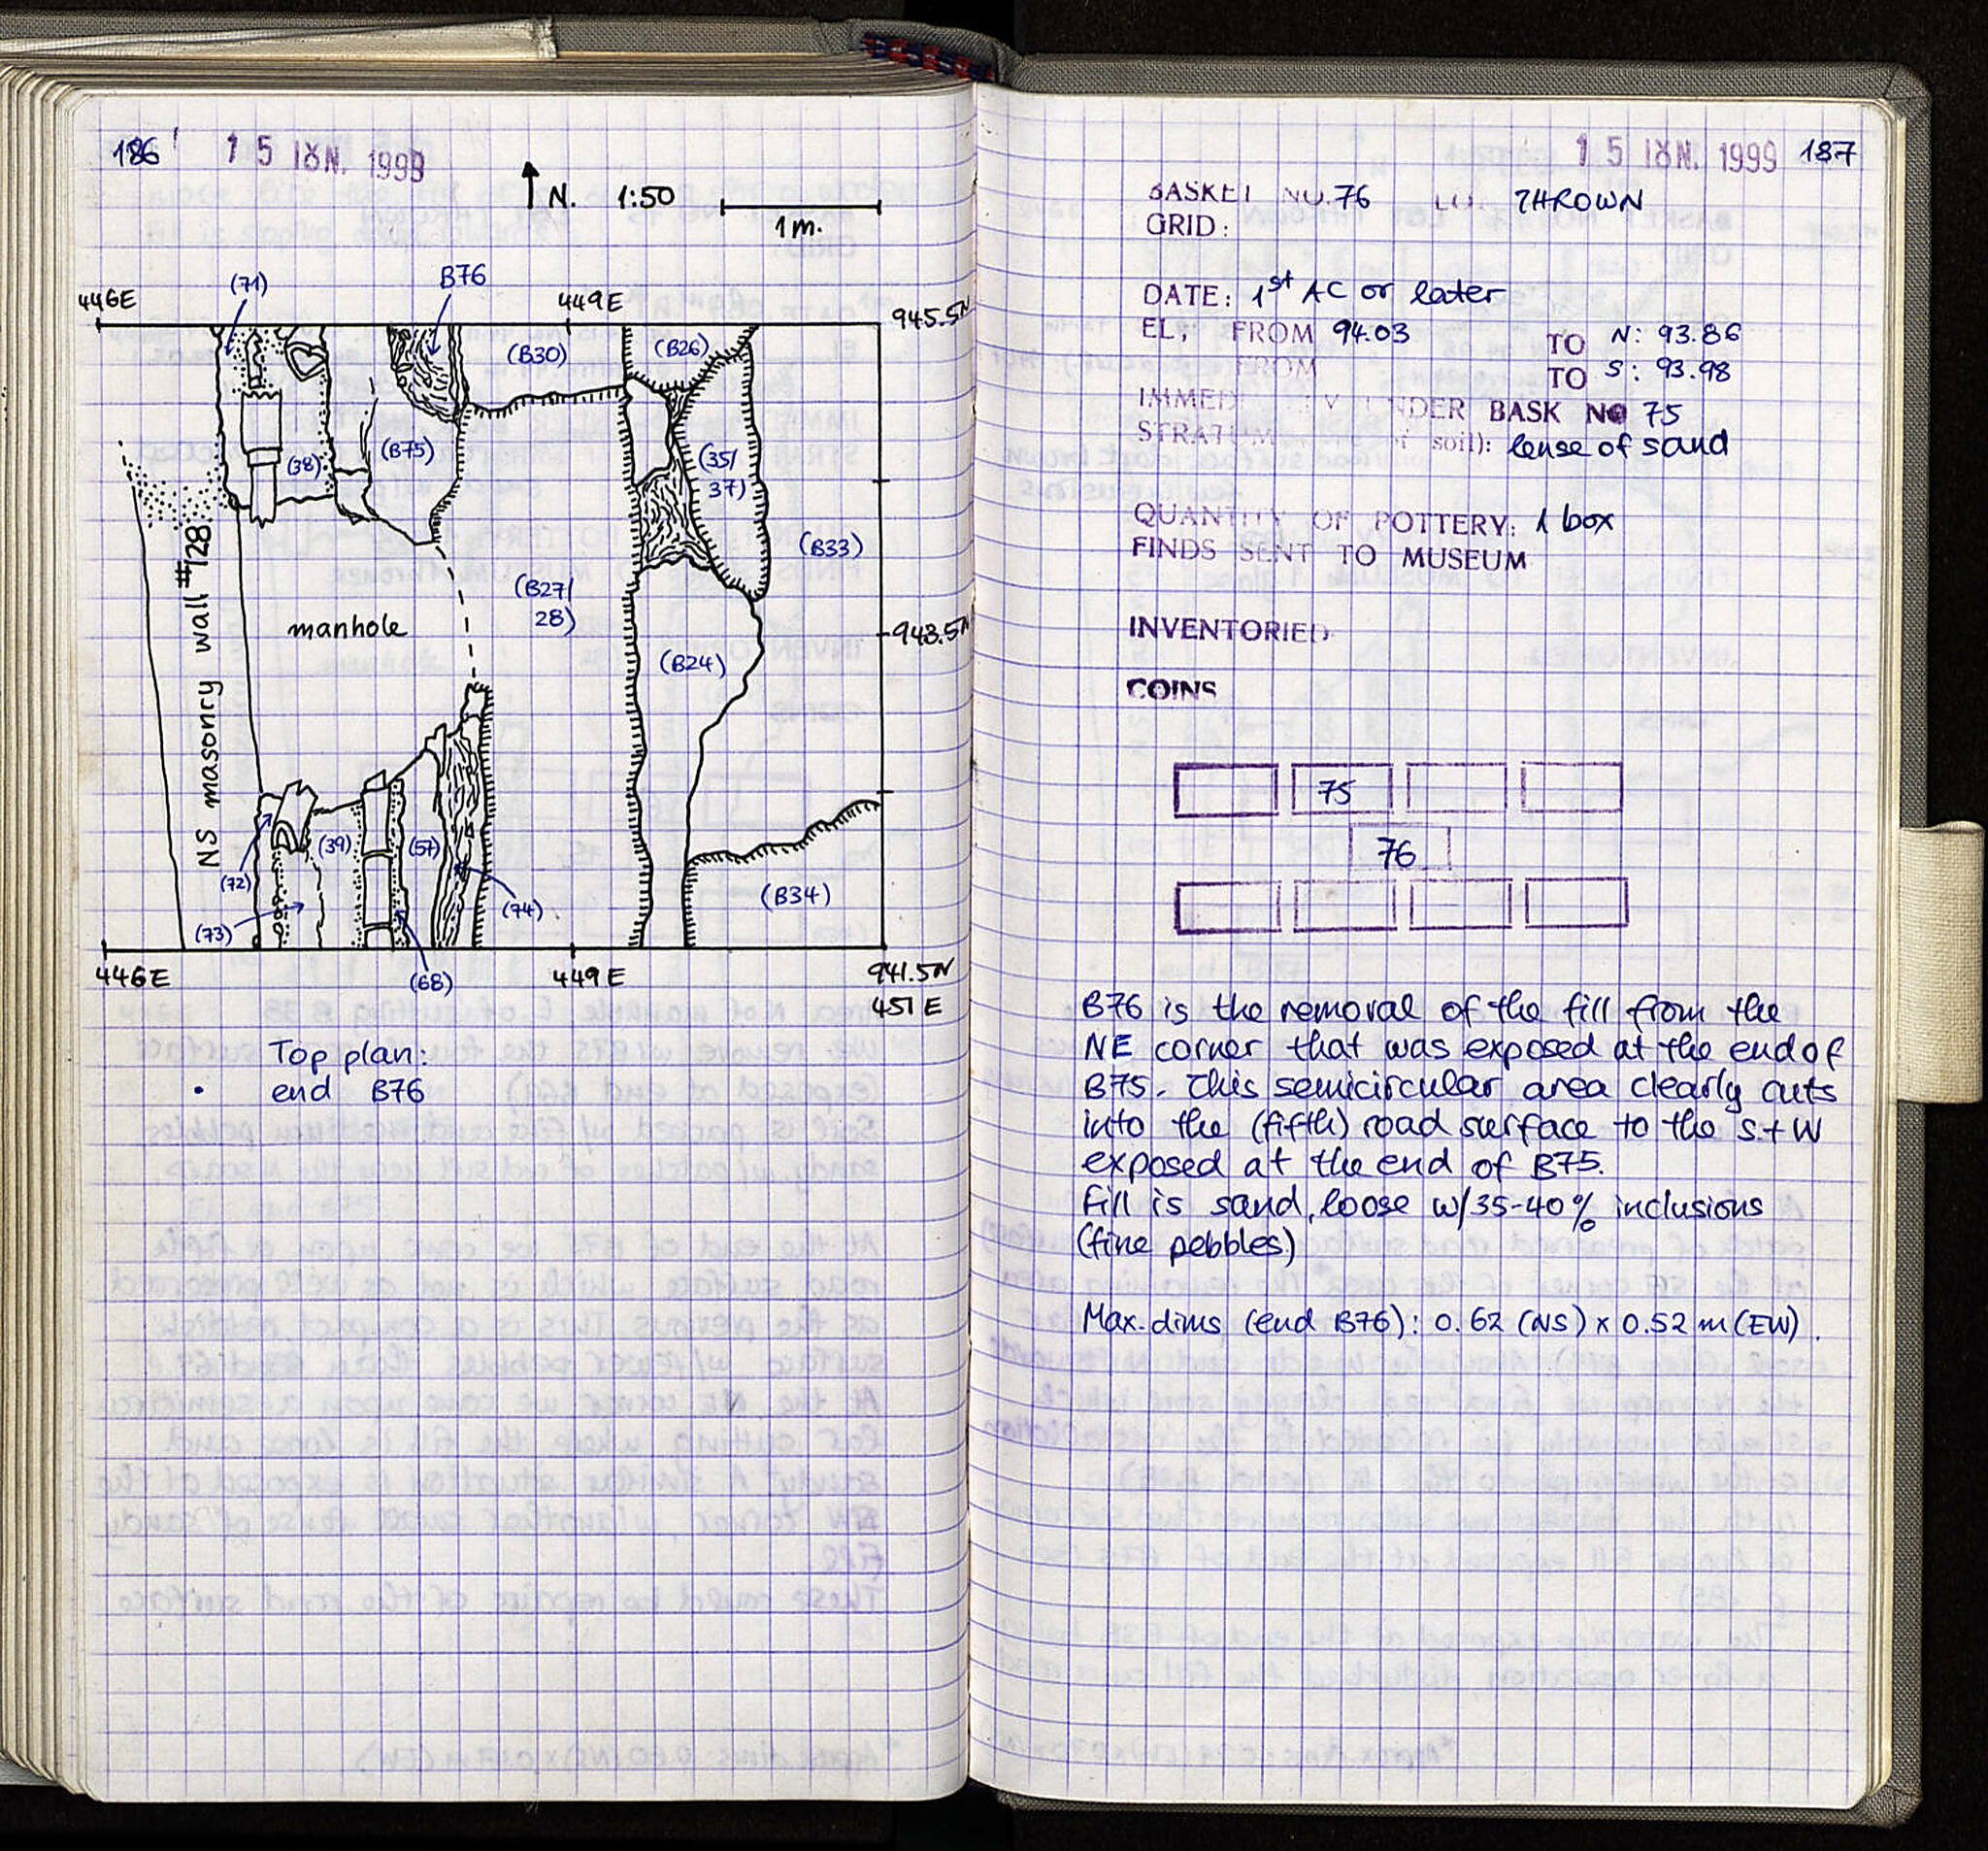 186
15 ΙΟΥΝ. 1999
N. 1:50
1 m.
(71)
B76
446E
449E
945.5N
(B30)
(B26)
(38)
(B75)
(35/
37)
NS masonry wall #128
(B33)
(B27/
28)
manhole
943.5N
(B24)
(39)
(57)
(72)
(74)
(B34)
(73)
(68)
446E
449E
941.5N
451E
Top plan:
• end B76
15 ΙΟΥΝ. 1999 187
BASKET NO. 76 LOT THROWN
GRID:
DATE: 1st AC or later
EL, FROM 94.03 TO N: 93.86
FROM TO S: 93.98
IMMED UNDER BASK NO 75
STRATUM soil): lense of sand
QUANTITY OF POTTERY: 1 box
FINDS SENT TO MUSEUM
INVENTORIED
COINS
75
76
B76 is the removal of the fill from the
NE corner that was exposed at the end of
B75. This semicircular area clearly cuts
into the (fifth) road surface to the S+W
exposed at the end of B75.
Fill is sand, loose w/35-40% inclusions
(fine pebbles)
Max. dims (end B76): 0.62 (NS) x 0.52 m (EW).